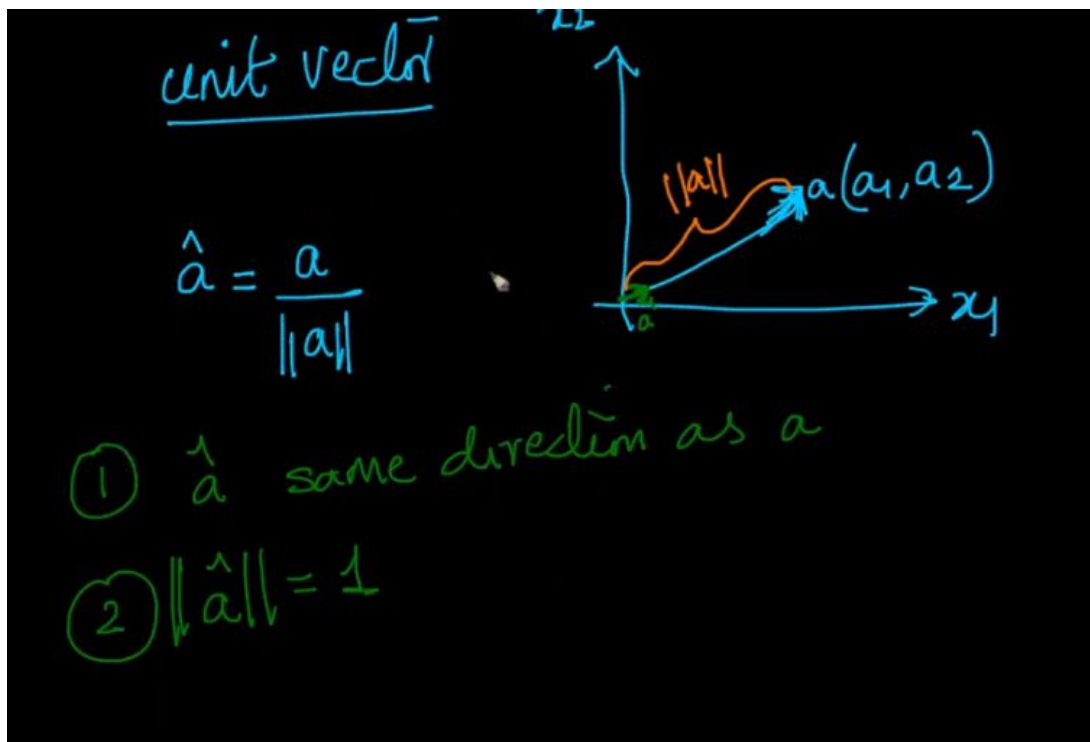 unit vector
x2
||a||
a(a1, a2)
â = a / ||a||
a
x1
1 â same direction as a
2 ||â|| = 1